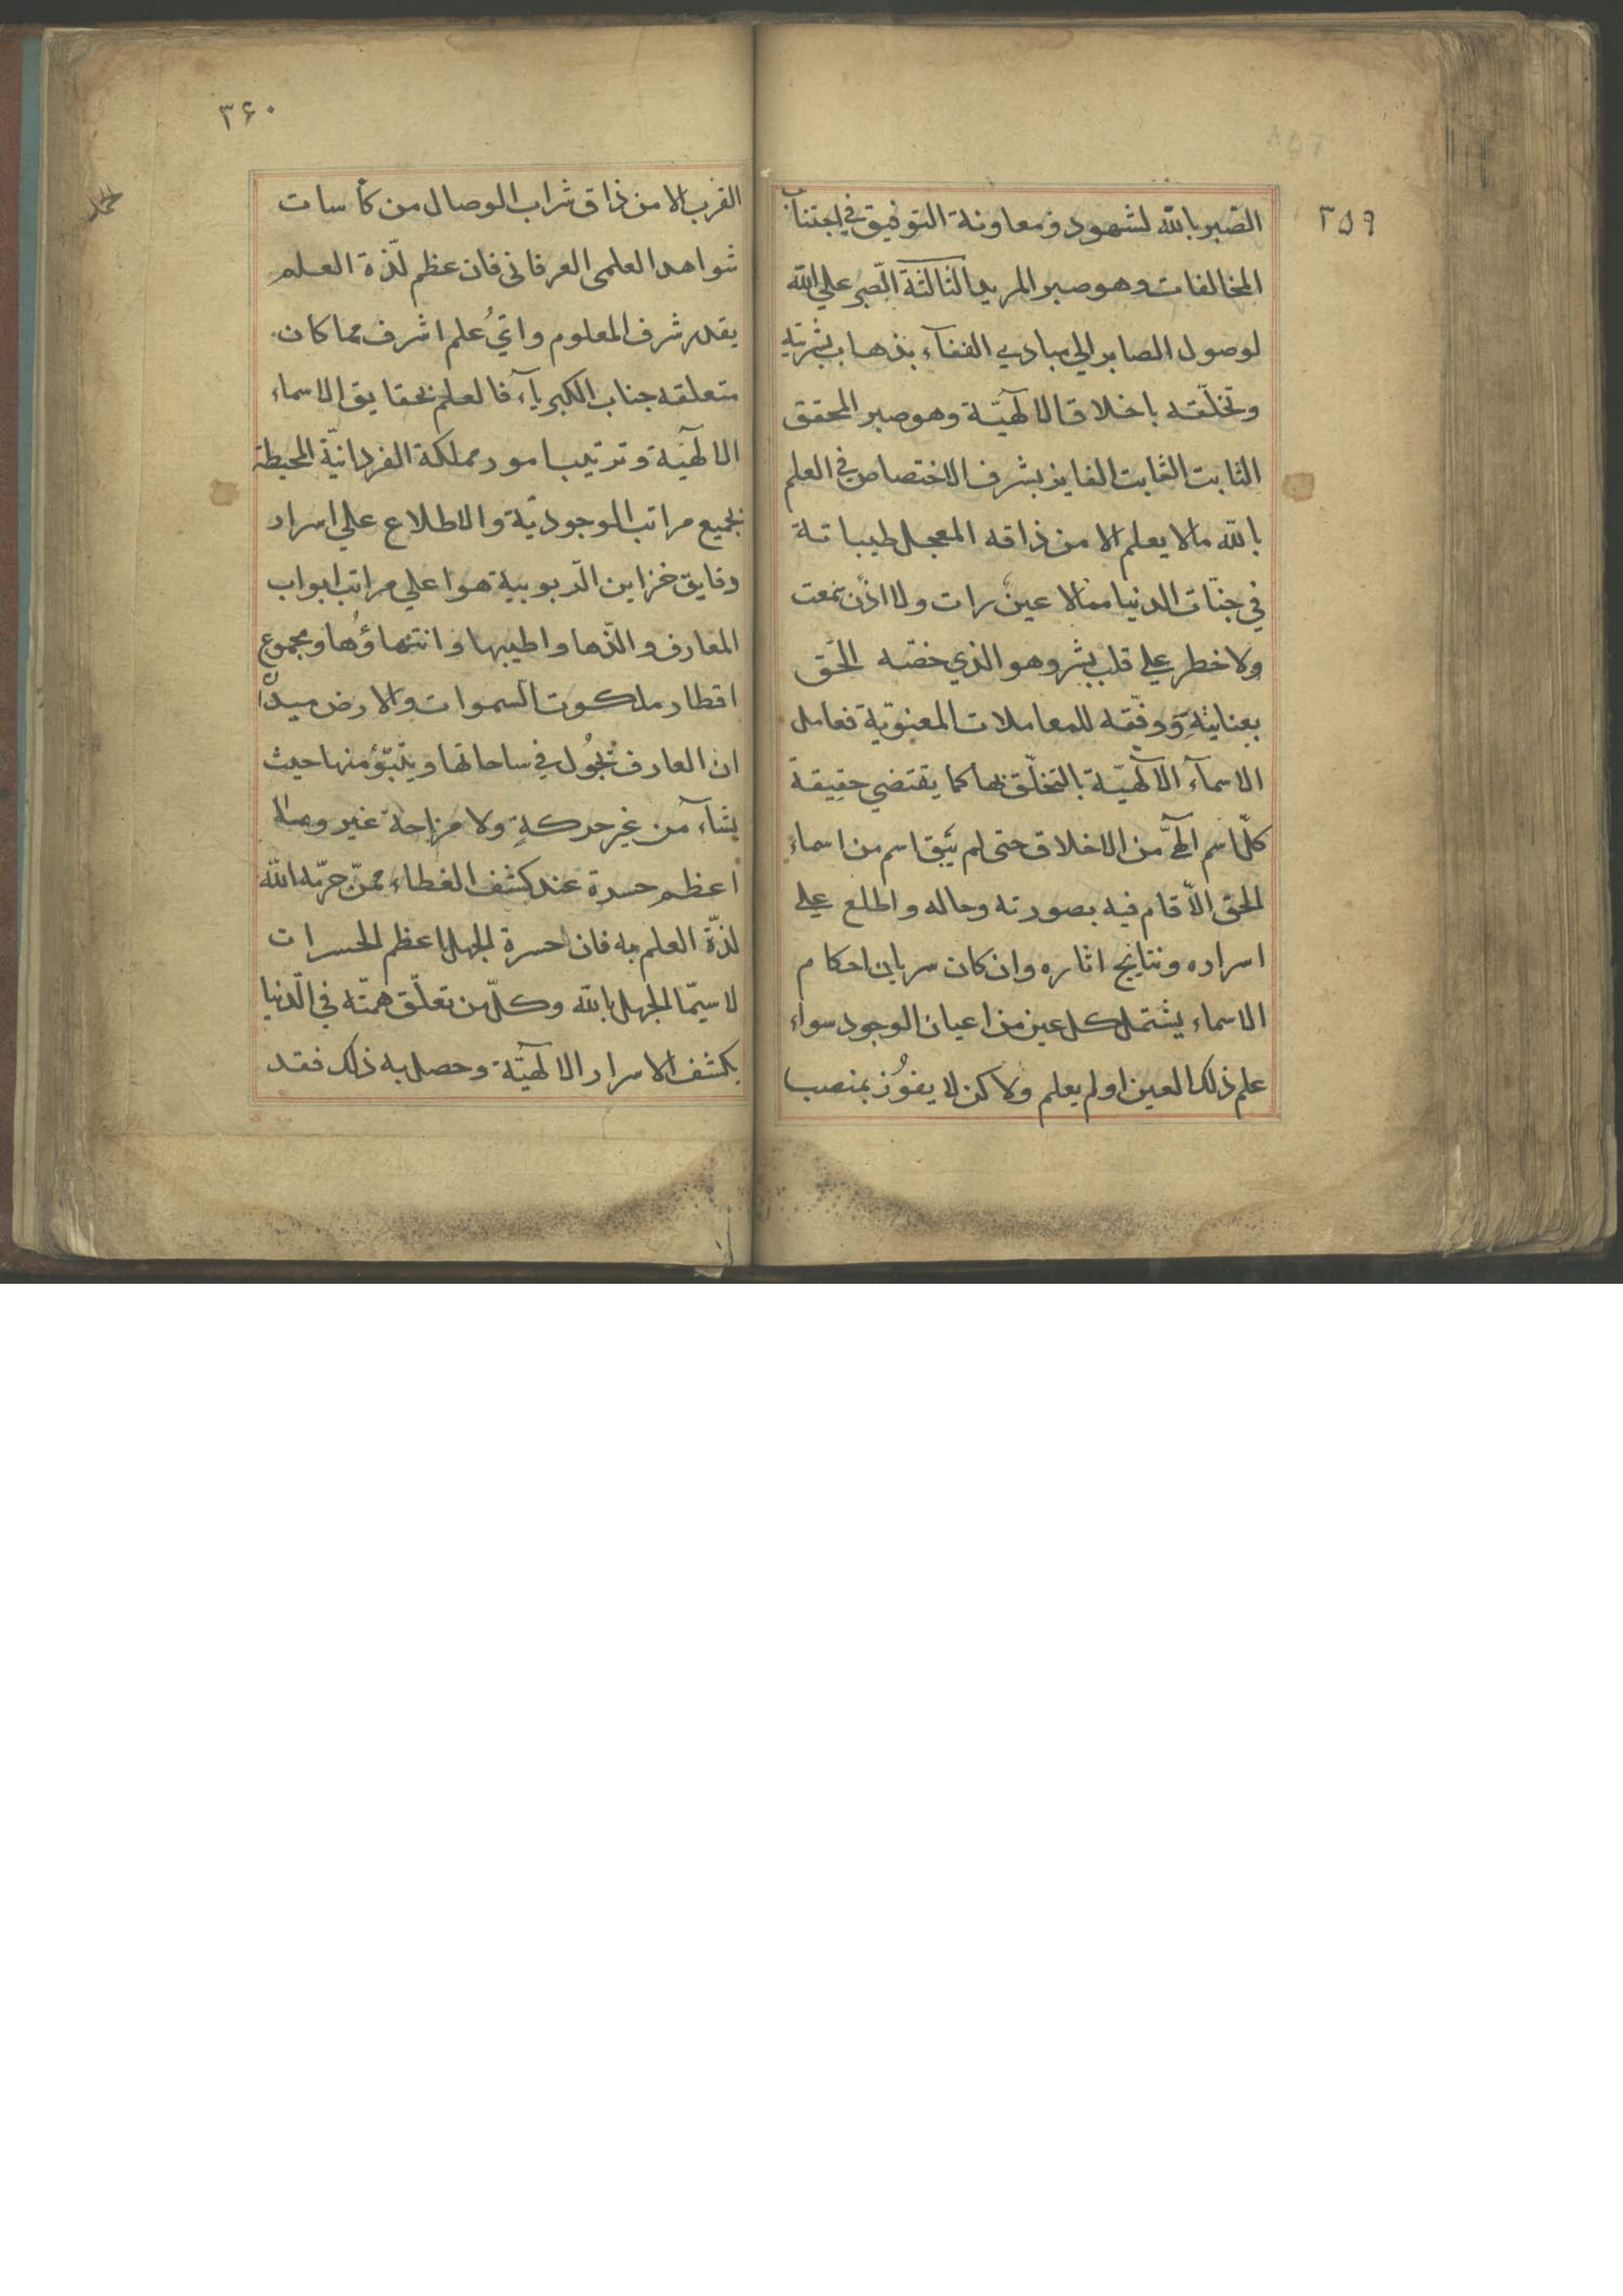 ٣٥٩
الصبر بالله لشهود ومعاونة التوفيق في اجتناب
المخالفات وهو صبر المريد الثالثة الصّبر علي الله
لوصول الصابر الي مبادي الفنآء بذهاب بشريّته
وتخلّقه باخلاق الالٓهيّة وهو صبر المحقق
الثابت الثابت الفايز بشرف الاختصاص في العلم
بالله مالا يعلم الا من ذاقه المعجل طيباته
في جنّات الدنيا ممالا عينٌ رات ولا اذنٌ سمعت
ولا خطر علي قلب بشر وهو الذي خصّه الحَق
بعنايتهِ وَوفّقه للمعاملات المعنويّة فعامل
الاسمآء الالٓهيّة بالتخلّق بها كما يقتضي حقيقة
كلّ اسم الٓهيٍّ من الاخلاق حتى لم يَبق اسم من اسماء
الحق الّا قام فيه بصورته وحاله واطلع علي
اسراره ونتايج اثاره وان كان سريان احكام
الاسماء يشتمل كل عين من اعيان الوجود سواء
علم ذلك العين اولم يعلم ولاكن لا يفوُز بمنصب
٣۶٠
القرب الا من ذاق شراب الوصال من كأسات
شواهد العلمى العرفانى فان عظم لذّة العلم
بقدر شرف المعلوم وايُّ علم اشرف مما كان
متعلقه جناب الكبريآء فالعلم بحقايق الاسماء
الالٓهيّة وترتيب امور مملكة الفردانيّة المحيطة
بجميع مراتب الوجوديّة والاطلاع علي اسرار
دقايق خزاين الرّبوبية هو اعلي مراتب ابواب
المعارف والذّها واطيبها وانتهاؤُها ومجموع
اقطار ملكوت السموات والارض ميدان
ان العارف تجُول في ساحاتها ويتبوّؤ منها حيث
يشآء من غير حركةٍ ولا مزاحمة غير ومالا
اعظم حسرة عند كشف الغطاء ممّن حرّمه الله
لذّة العلم به فان حسرة الجهل اعظم الحسرات
لا سيّما الجهل بالله وكلّ من تعلّق همّته في الدّنيا
بكشف الاسرار الالٓهيّة وحصل به ذلك فقد